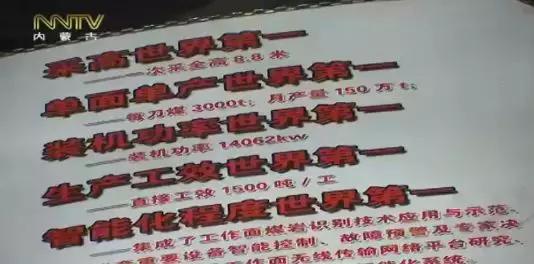 NMTV
内蒙古
采高世界第一
——一次采全高8.8米
单面单产世界第一
——每刀煤3000t；月产量150万t；
装机功率世界第一
——装机功率14062kw
生产工效世界第一
——直接工效1500吨／工
智能化程度世界第一
——集成了工作面煤岩识别技术应用与示范、
重要设备智能控制、故障预警及专家决
工作面无线传输网络平台研究、
能化系统。